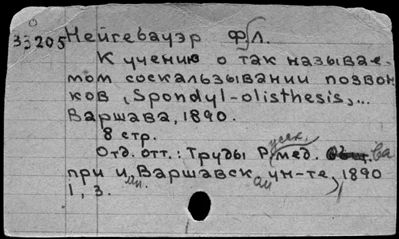 33205 Нейгебауэр Ф. Л.
К учению о так называе-
мом соскальзывании позвон-
ков (Spondyl-olisthesis)...
Варшава, 1890.
8 стр.
Отд. отт.: Труды Русск. мед.
при и. Варшавск. ун-те, 1890
1, 3.